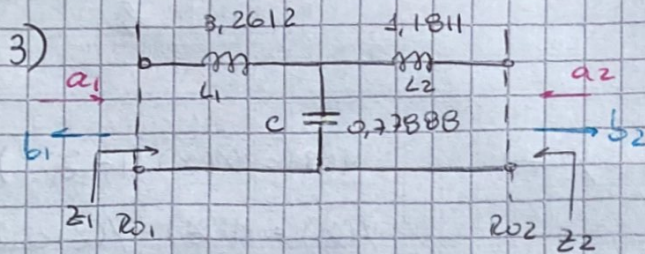 3)
3,2612 1,1811
a1 L1 L2 a2
C 0,77888
b1 b2
Z1 R01 R02 Z2